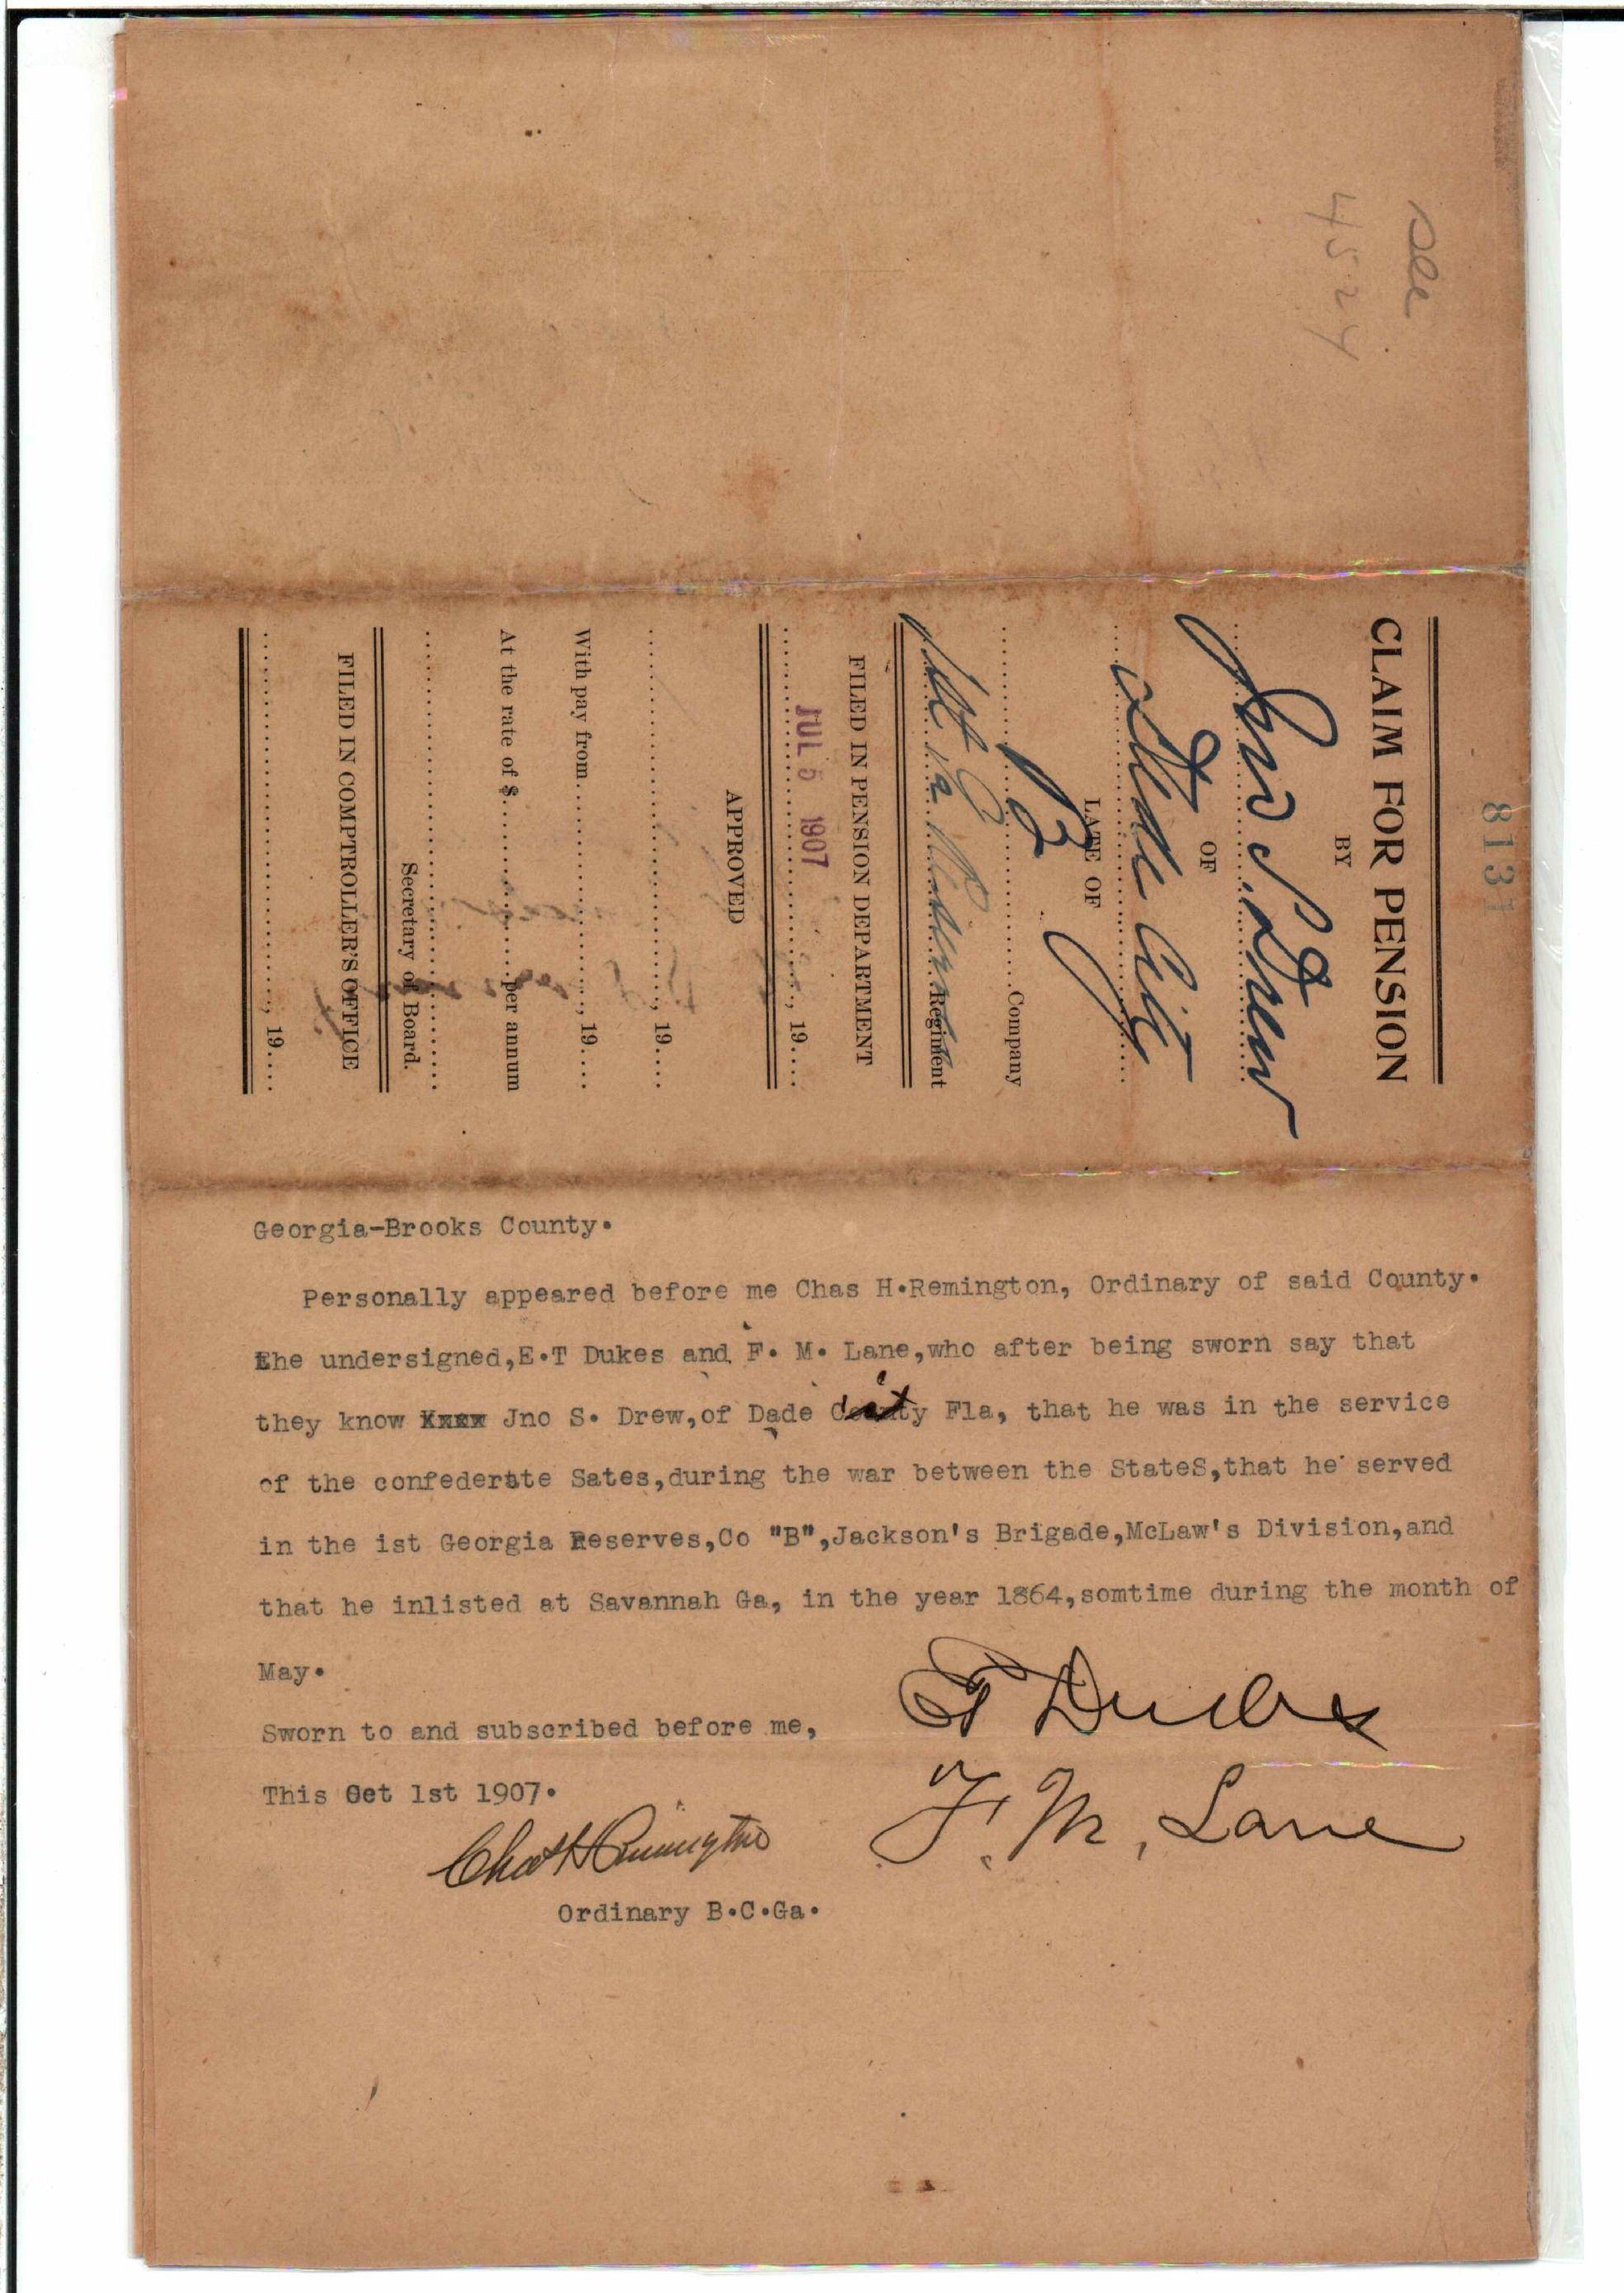 see
4524
8131
CLAIM FOR PENSION
BY
Jno S. Drew
OF
Dade City
LATE OF
B Company
Regiment
FILED IN PENSION DEPARTMENT
JUL 5 1907 , 19....
APPROVED
, 19....
With pay from , 19....
At the rate of $ per annum
Secretary of Board.
FILED IN COMPTROLLER'S OFFICE
, 19....
Georgia-Brooks County.
Personally appeared before me Chas H.Remington, Ordinary of said County.
the undersigned,E.T Dukes and F. M. Lane,who after being sworn say that
they know Jno S. Drew,of Dade City Fla, that he was in the service
of the confederate Sates,during the war between the StateS,that he served
in the ist Georgia Reserves,Co "B",Jackson's Brigade,McLaw's Division,and
that he inlisted at Savannah Ga, in the year 1864,somtime during the month of
May.
Sworn to and subscribed before me,
E T Dukes
This Oct 1st 1907.
F. M. Lane
Chas H Remington
Ordinary B.C.Ga.